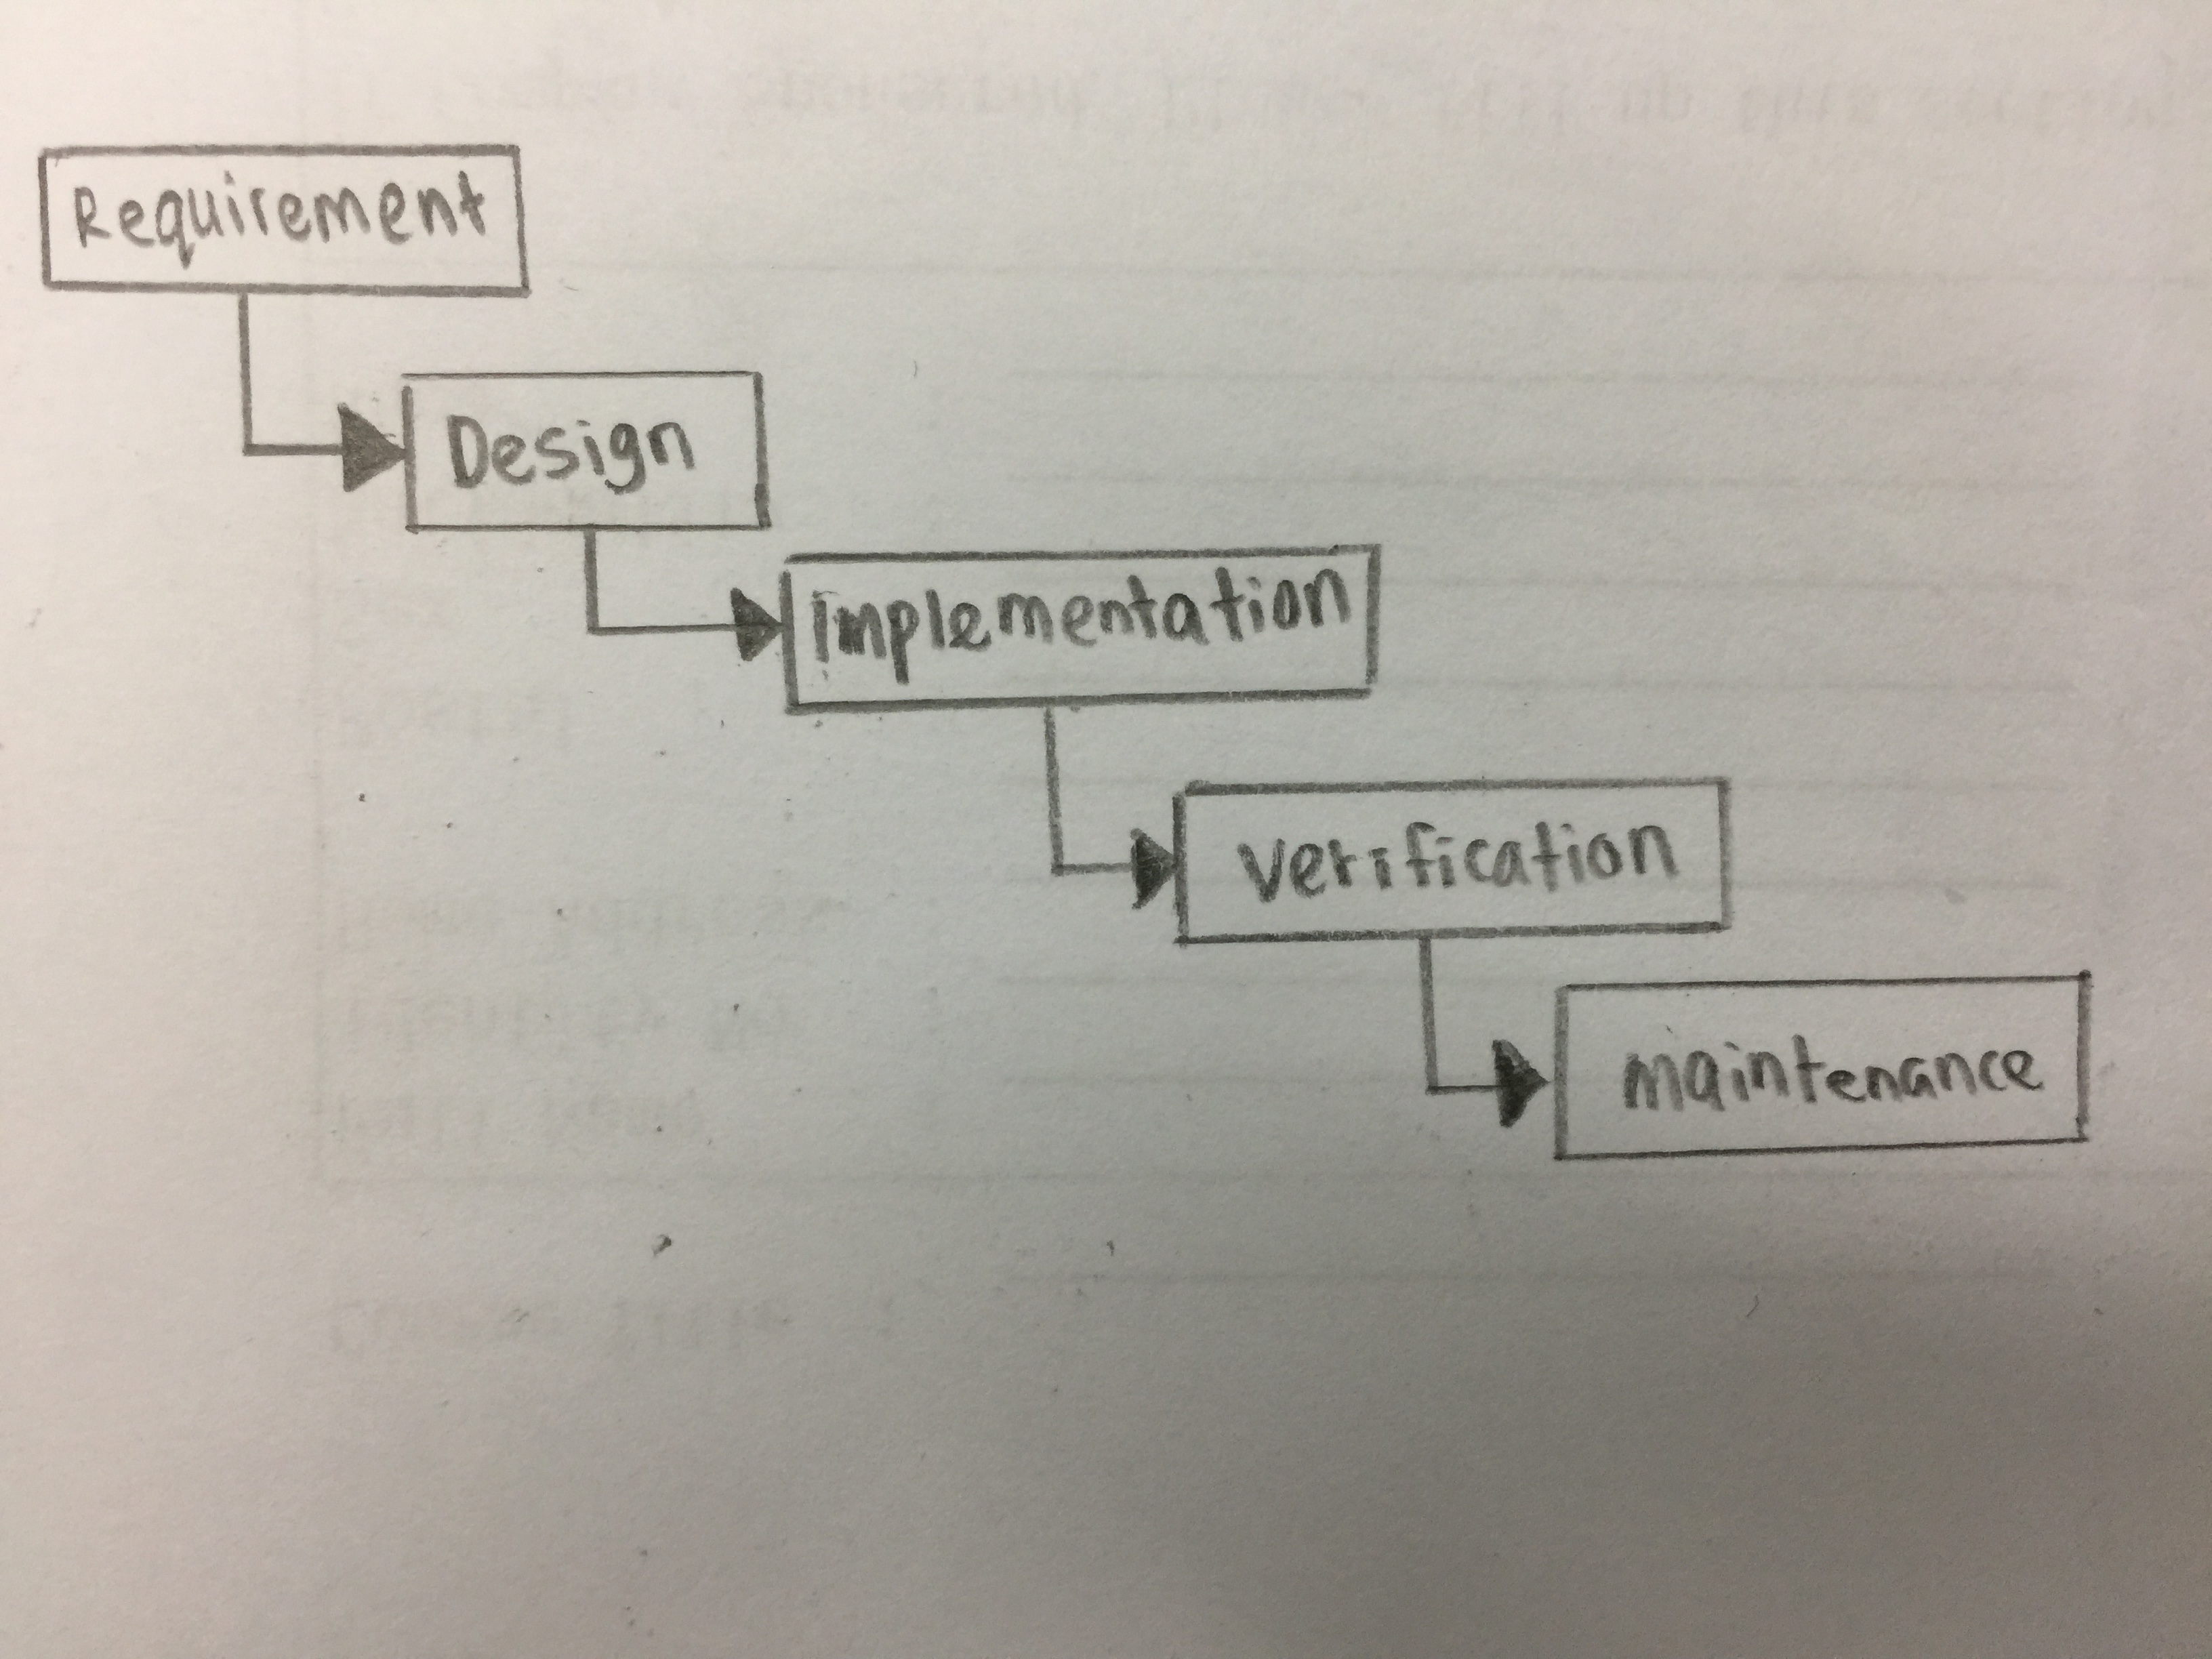 Requirement
Design
implementation
verification
maintenance